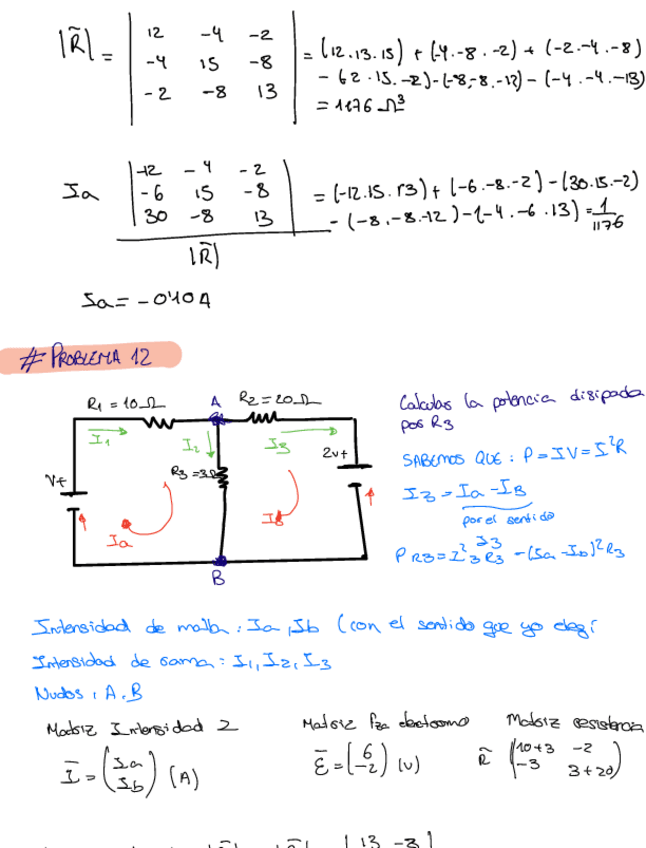 |R̃| = | 12 -4 -2 | = (12.13.15) + (-4.-8.-2) + (-2.-4.-8)
| -4 15 -8 | - (-2.15.-2)-(-8.-8.-12) - (-4.-4.-13)
| -2 -8 13 | = 1176 Ω³
Ia | -12 -4 -2 |
| -6 15 -8 | = (-12.15.13) + (-6.-8.-2) - (30.15.-2)
| 30 -8 13 | - (-8.-8.-12) - (-4.-6.13) = 1/1176
|R̃|
Ia = -0'10 A
# PROBLEMA 12
R1 = 10Ω A R2 = 20Ω
I1 I2 I3
R3 = 3Ω 2v+
V+
Ia Ib
B
Calcular la potencia disipada
por R3
SABEMOS QUE: P = IV = I²R
I3 = Ia - IB
por el sentido
P R3 = I²3 R3 - (Ia - Ib)² R3
Intensidad de malla: Ia, Ib (con el sentido que yo elegí
Intensidad de rama: I1, I2, I3
Nudos: A, B
Matriz Intensidad 2 Matriz fza electromo Matriz resistencia
Ī = (Ia Ib) (A) Ɛ̄ = (6 -2) (V) R̃ (10+3 -2 -3 3+20)
| 13 -3 |